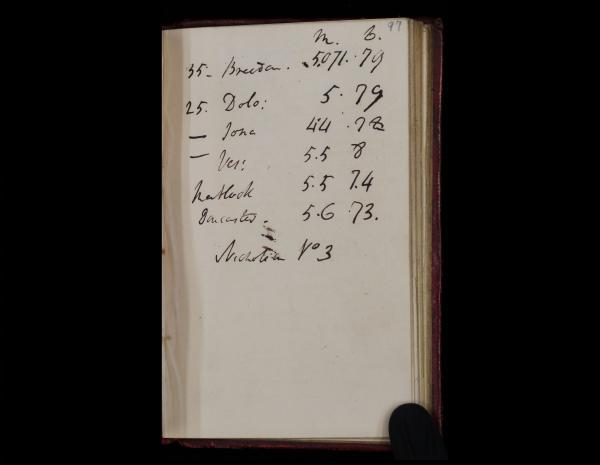 97
m. b.
35- Breedon. 5.071. 79
25. Dolo: 5. 79
— Iona 44 .78
— Ves: 5.5 8
Matlock 5.5 7.4
Doncaster. 5.6 .73.
Vo 3